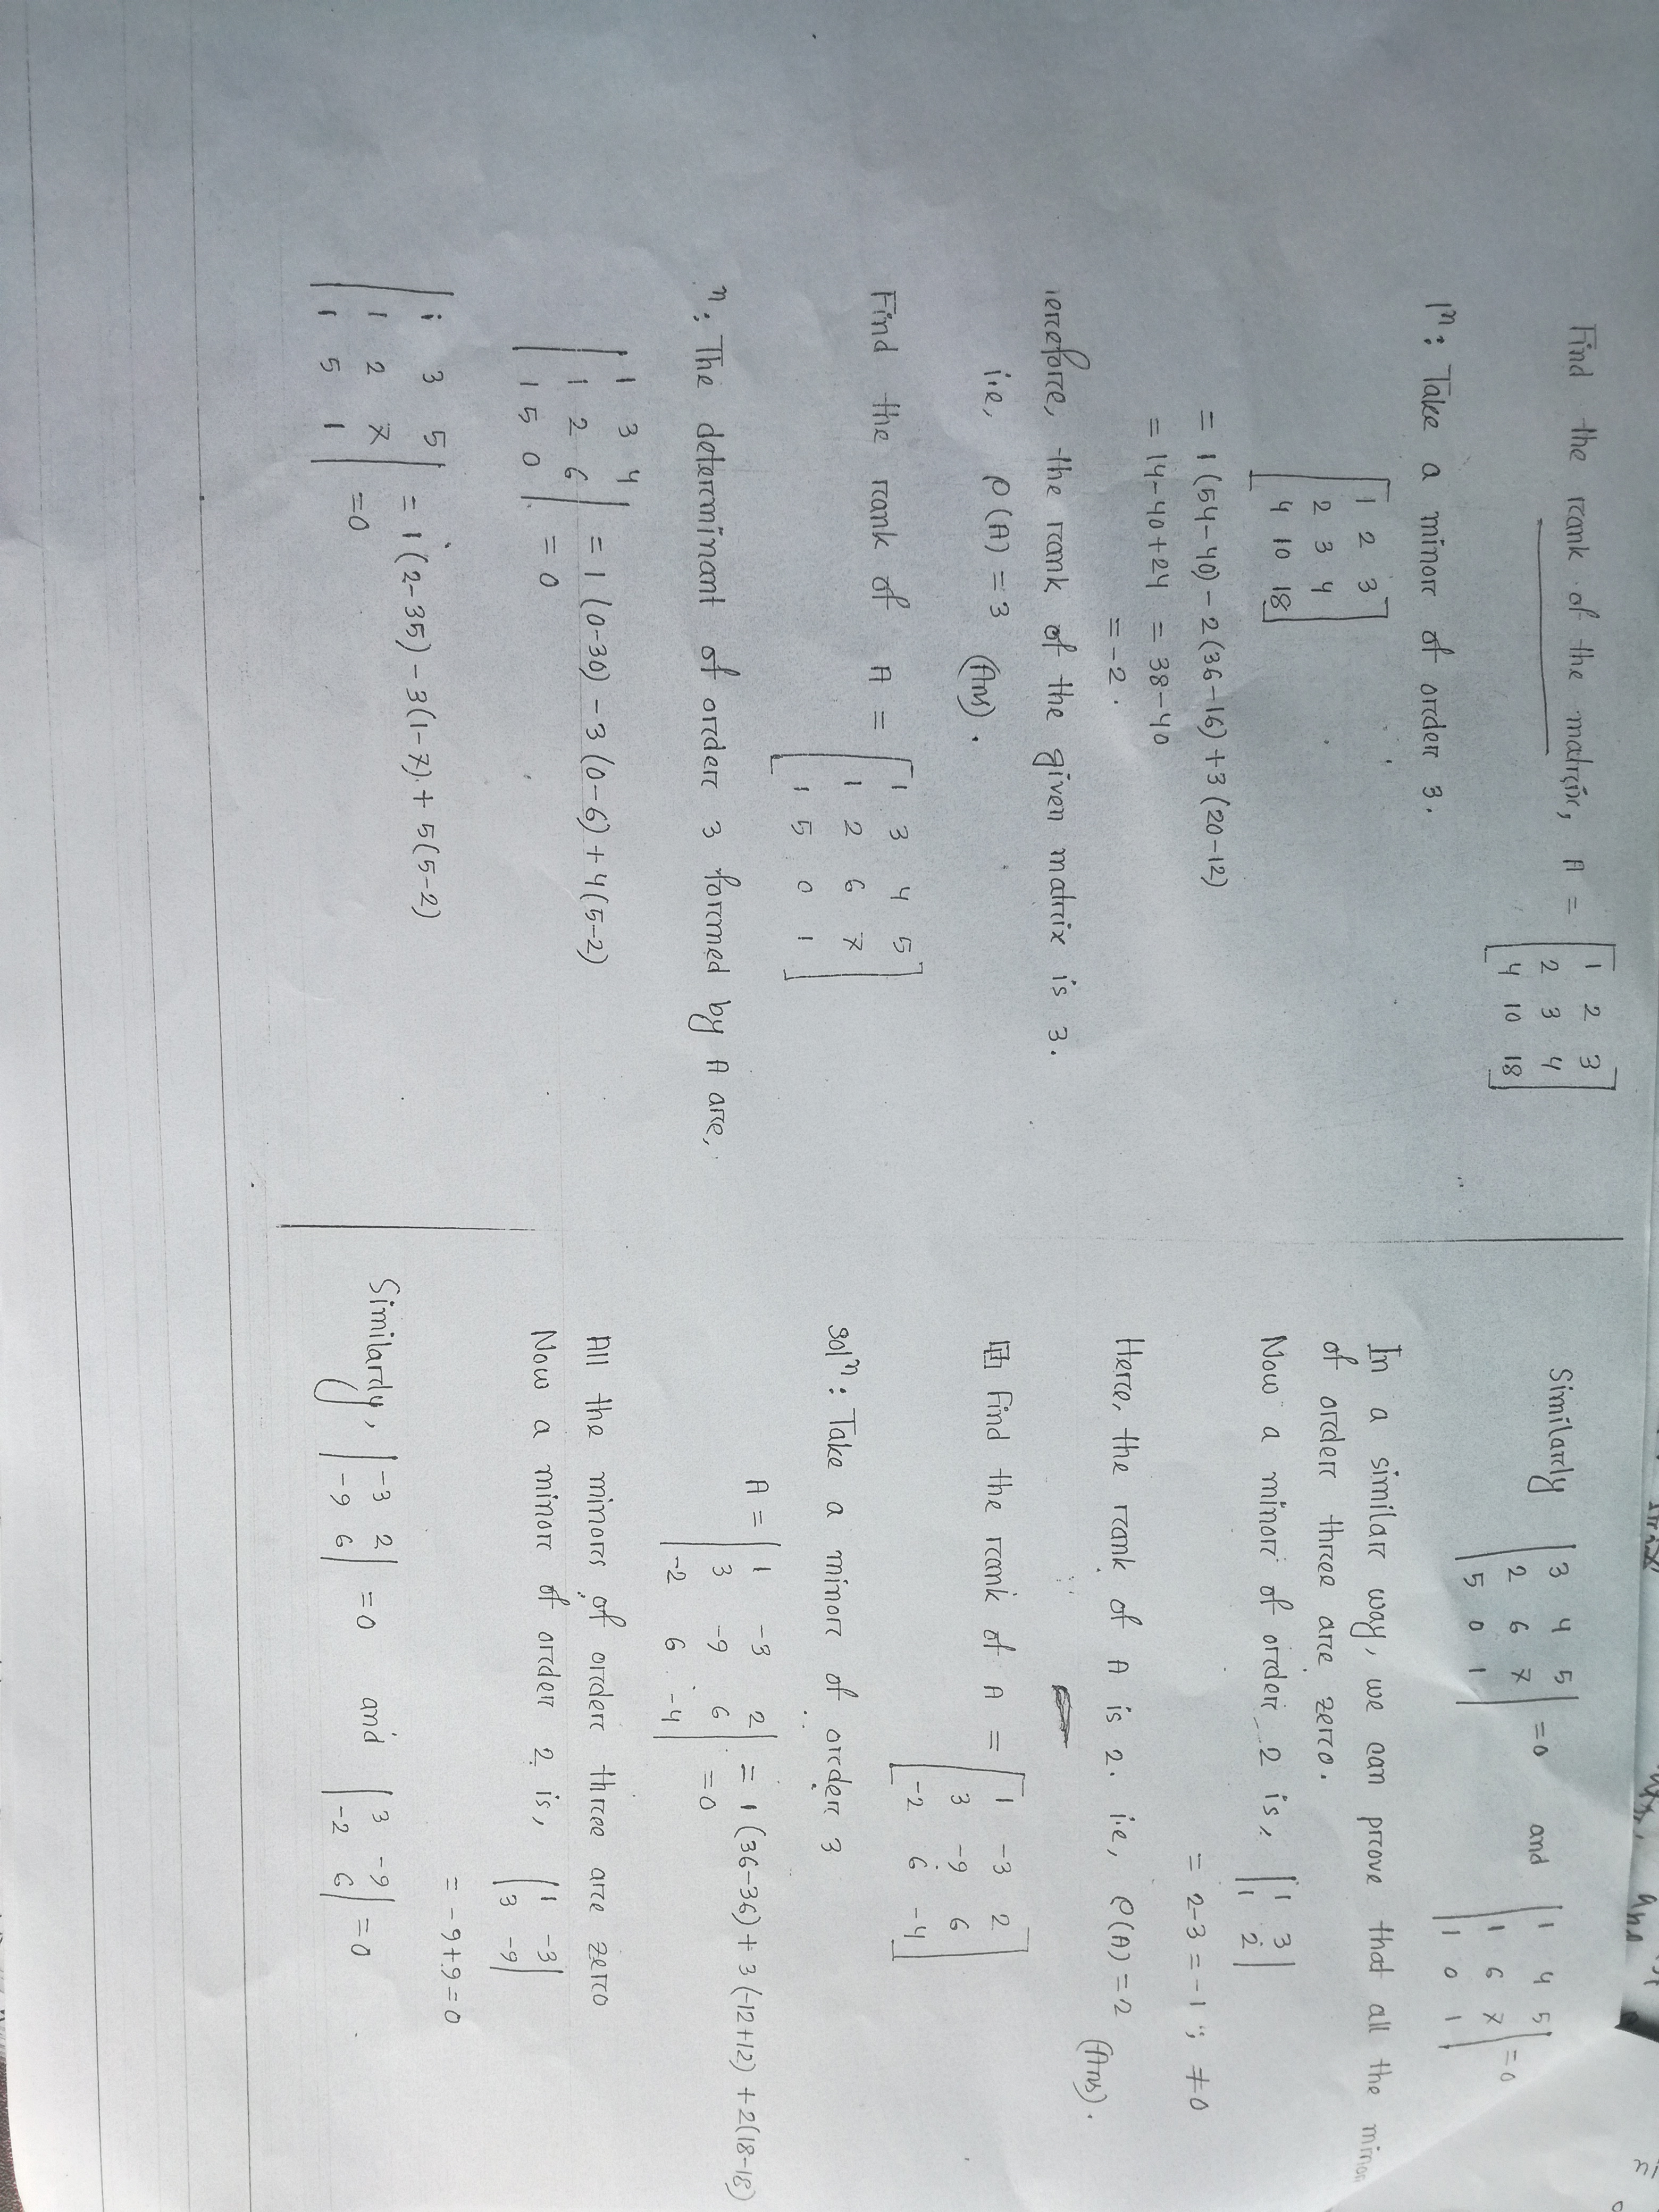 Find the rank of the matrix, A = [1 2 3
2 3 4
4 10 18]
lⁿ: Take a minor of order 3.
[1 2 3
2 3 4
4 10 18]
= 1(54-40) - 2(36-16) + 3(20-12)
= 14-40+24 = 38-40
= -2.
erefore, the rank of the given matrix is 3.
i.e, ρ(A) = 3 (Ans).
Find the rank of A = [1 3 4 5
1 2 6 7
1 5 0 1]
n: The determinant of order 3 formed by A are,
|1 3 4|
|1 2 6| = 1(0-30) - 3(0-6) + 4(5-2)
|1 5 0| = 0
|1 3 5| = 1(2-35) - 3(1-7) + 5(5-2)
|1 2 7| = 0
|1 5 1|
Similarly |3 4 5| = 0 and |1 4 5| = 0
|2 6 7| |1 6 7|
|5 0 1| |1 0 1|
In a similar way, we can prove that all the minor
of order three are zero.
Now a minor of order 2 is, |1 3|
|1 2|
= 2-3 = -1 ; ≠0
Here, the rank of A is 2. i.e, ρ(A) = 2
(Ans).
Find the rank of A = [1 -3 2
3 -9 6
-2 6 -4]
Solⁿ: Take a minor of order 3
A = |1 -3 2| = 1(36-36) + 3(-12+12) + 2(18-18)
|3 -9 6| = 0
|-2 6 -4|
All the minors of order three are zero
Now a minor of order 2 is, |1 -3|
|3 -9|
= -9+9 = 0
Similarly, |-3 2| = 0 and |3 -9| = 0
|-9 6| |-2 6|